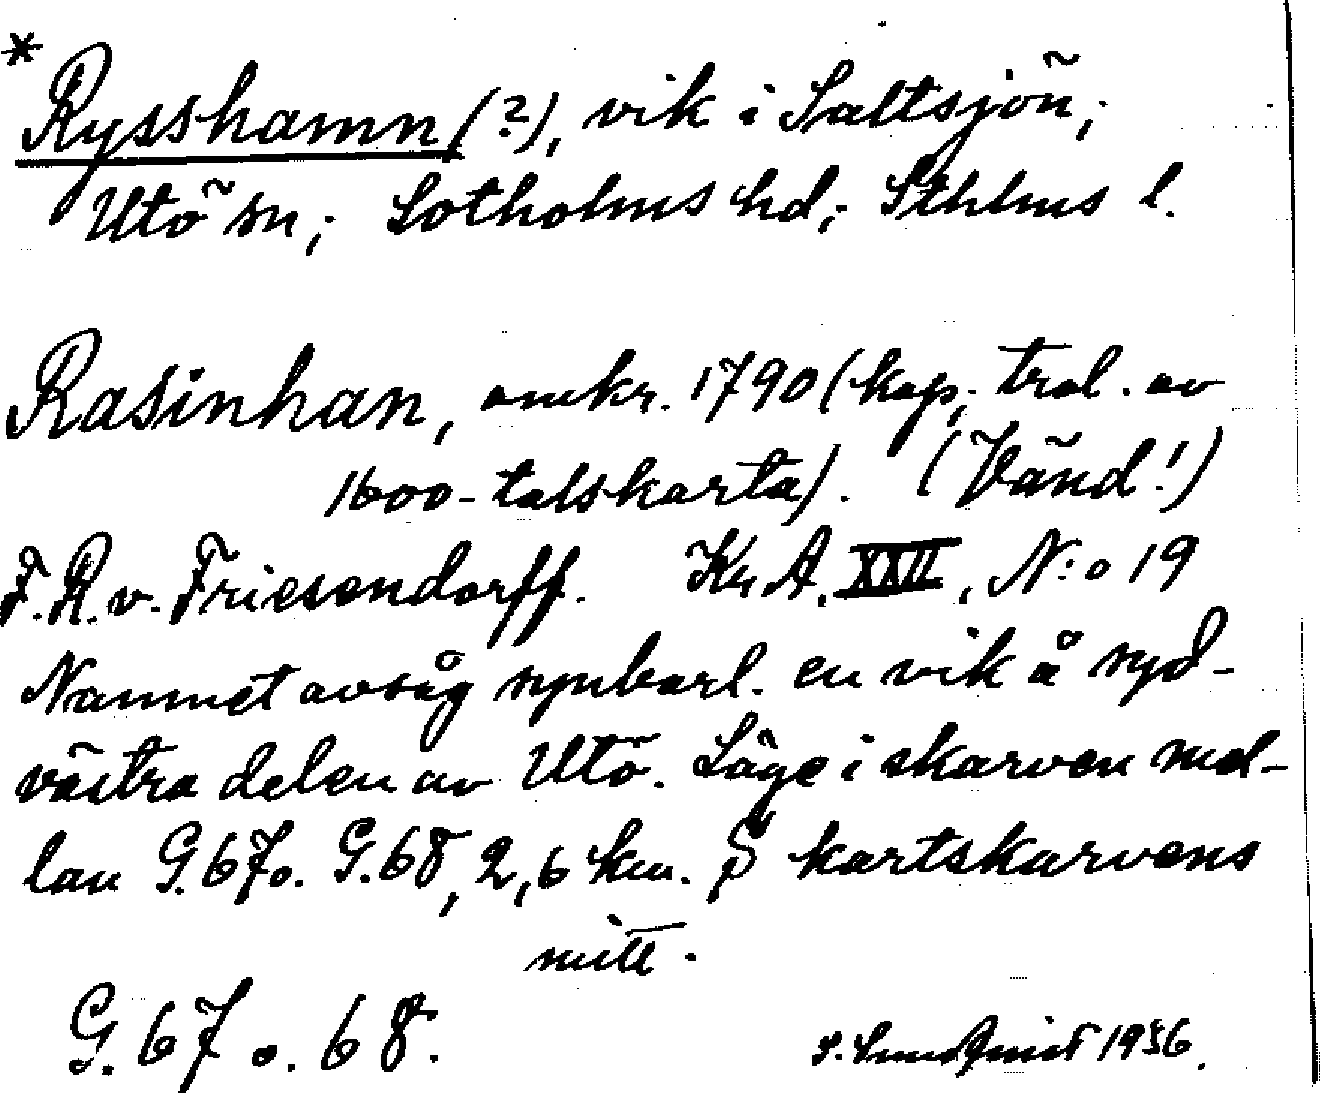 * Rysshamn (?), vik i Saltsjön;
Utö sn; Sotholms hd; Sthlms l.
Rasinhan, omkr. 1790 (kop. trol. av
1600-talskarta). (Vänd!)
F. R. v. Friesendorff. Kr. A. XXII, N:o 19
Namnet avsåg synbarl. en vik å syd-
västra delen av Utö. Läge i skarven mel-
lan G. 67 o. G. 68, 2,6 km. S kartskarvens
mitt.
G. 67 o. 68.
S. Lundquist 1936.